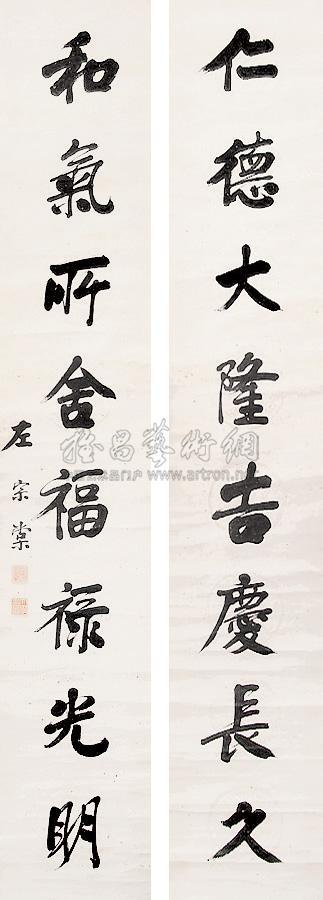 仁德大隆吉慶長久
和氣所舍福祿光明
左宗棠
雅昌藝術網
www.artron.net